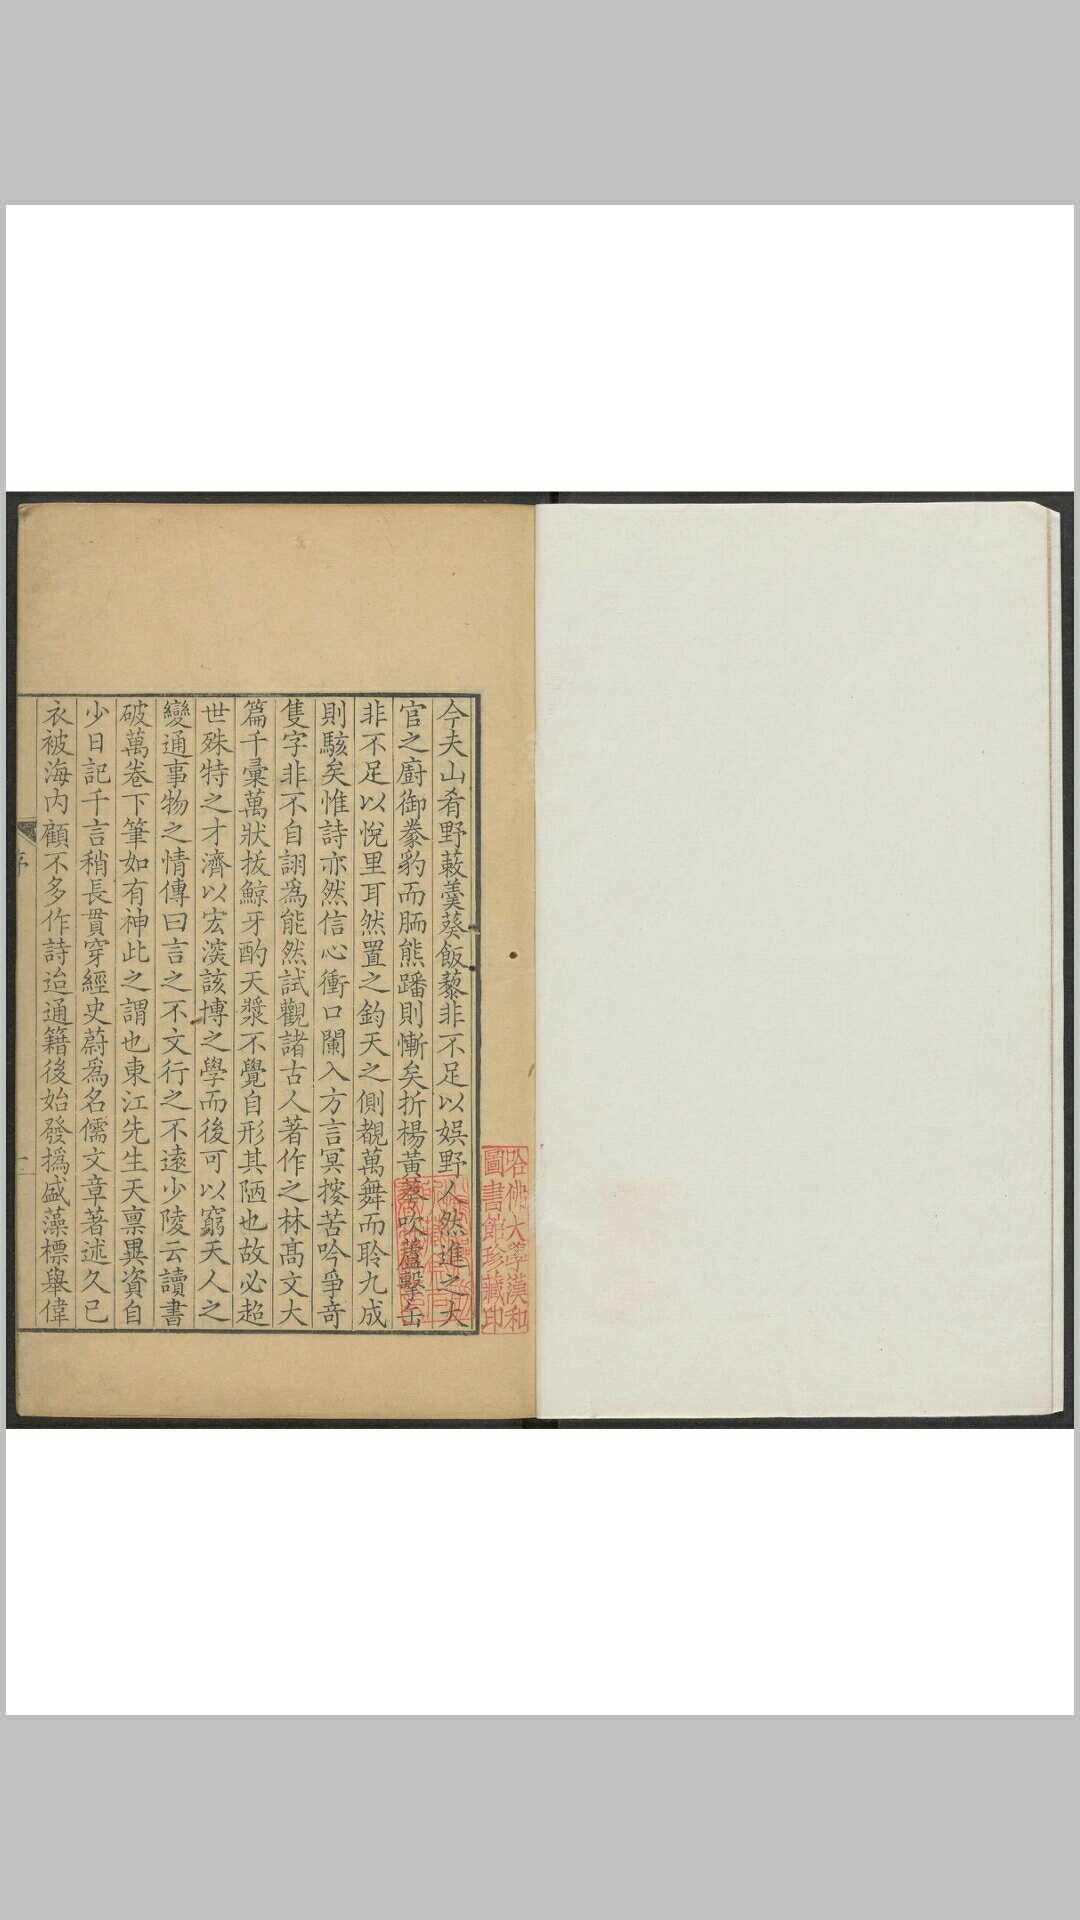 哈佛大學漢和
圖書館珍藏印
今夫山肴野蔌羹葵飯藜非不足以娛野人然進之大
官之廚御豢豹而胹熊蹯則慚矣折楊黃荂吹蘆擊缶
非不足以悅里耳然置之鈞天之側覩萬舞而聆九成
則駭矣惟詩亦然信心衝口闌入方言冥搜苦吟爭奇
隻字非不自詡爲能然試觀諸古人著作之林高文大
篇千彙萬狀拔鯨牙酌天漿不覺自形其陋也故必超
世殊特之才濟以宏深該博之學而後可以窮天人之
變通事物之情傳曰言之不文行之不遠少陵云讀書
破萬卷下筆如有神此之謂也東江先生天禀異資自
少日記千言稍長貫穿經史蔚爲名儒文章著述久已
衣被海內顧不多作詩迨通籍後始發撝盛藻標舉偉
序